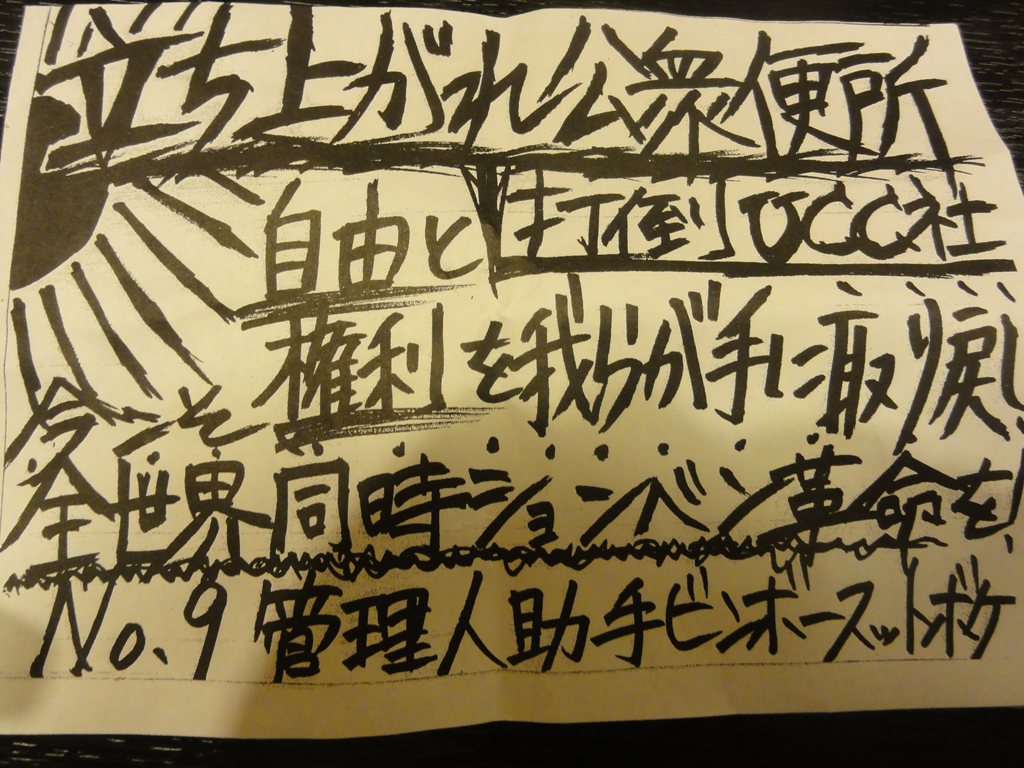 立ち上がれ公衆便所
打倒UCC社
自由と
権利を我らが手に取り戻し
今こそ
全世界同時ションベン革命を!
No.9 管理人助手ビンボースットボケ